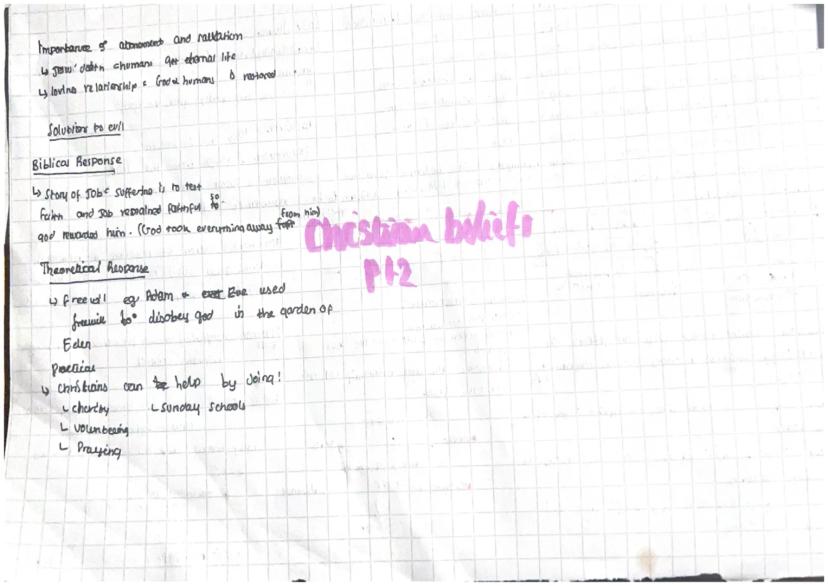 Importance of atonement and salvation
↳ Jesus' death = humans get eternal life
↳ loving relationship = God & humans is restored
Solutions to evil
Biblical Response
↳ Story of Job = suffering is to test
faith and Job remained faithful so
god rewarded him. (God took everything away from him)
Christian beliefs
pt2
Theoretical Response
↳ free will eg Adam & Eve used
freewill to disobey god in the garden of
Eden
Practical
↳ Christians can help by doing:
↳ charity ↳ Sunday schools
↳ volunteering
↳ Praying